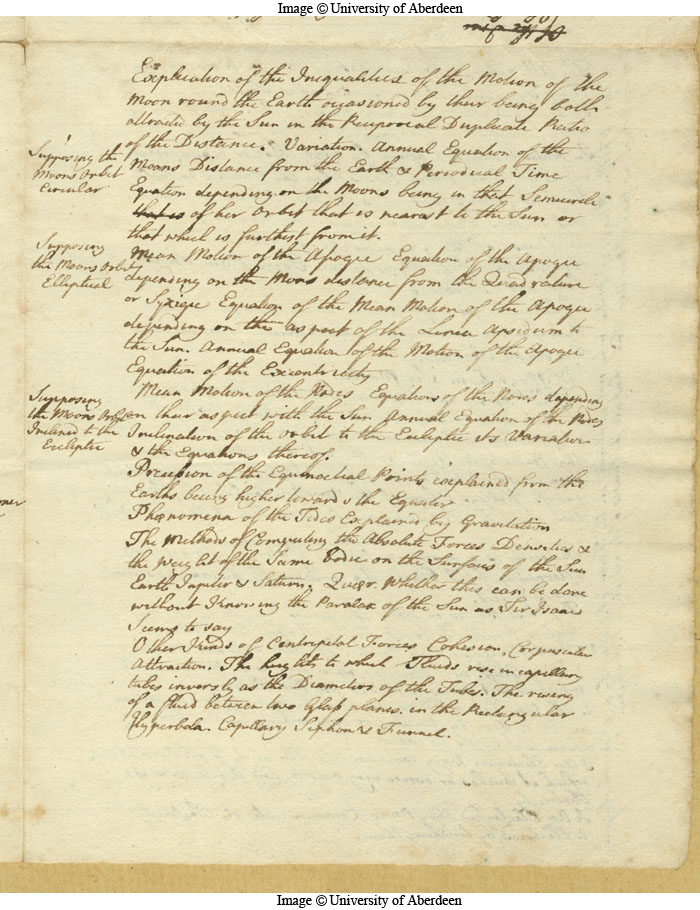 Image © University of Aberdeen
Explication of the Inequalities of the Motion of the
Moon round the Earth occasioned by their being both
attracted by the Sun in the Reciprocal Duplicate Ratio
of the Distance. Variation. Annual Equation of the
Supposing the
Moons Orbit
Circular
Moons Distance from the Earth & Periodical Time
Equation depending on the Moons being in that Semicircle
that is of her Orbit that is nearest to the Sun or
that which is furthest from it.
Supposing
the Moons Orbit
Elliptical
Mean Motion of the Apogee Equation of the Apogee
depending on the Moons distance from the Quadrature
or Syzigie Equation of the Mean Motion of the Apogee
depending on the aspect of the Linea Apsidum to
the Sun. Annual Equation of the Motion of the Apogee
Equation of the Excentricity
Supposing
the Moons Orbit
Inclined to the
Ecliptic
Mean Motion of the Nodes Equations of the Nodes depending
on their aspect with the Sun Annual Equation of the Nodes
Inclination of the Orbit to the Ecliptic its Variation
& the Equations thereof.
Precession of the Equinoctial Points explained from the
Earths being higher towards the Equator
Phænomena of the Tides Explained by Gravitation
The Methods of Computing the Absolute Forces Densities &
the Weight of the Same Bodie on the Surfaces of the Sun
Earth Jupiter & Saturn. Quær. Whether this can be done
without Knowing the Paralax of the Sun as Sir Isaac
Seems to say
Other Kinds of Centripetal Forces Cohesion, Corpuscular
Attraction. The heights to which Fluids rise in capillary
tubes inversly as the Diameters of the Tubes. The rising
of a fluid between two Glass planes in the Rectangular
Hyperbola. Capillary Siphons & Funnel.
Image © University of Aberdeen